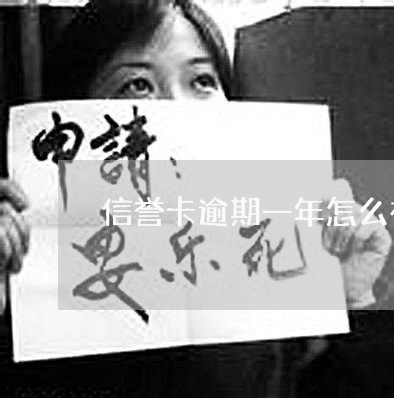 申請：
信誉卡逾期一年怎么
安乐死